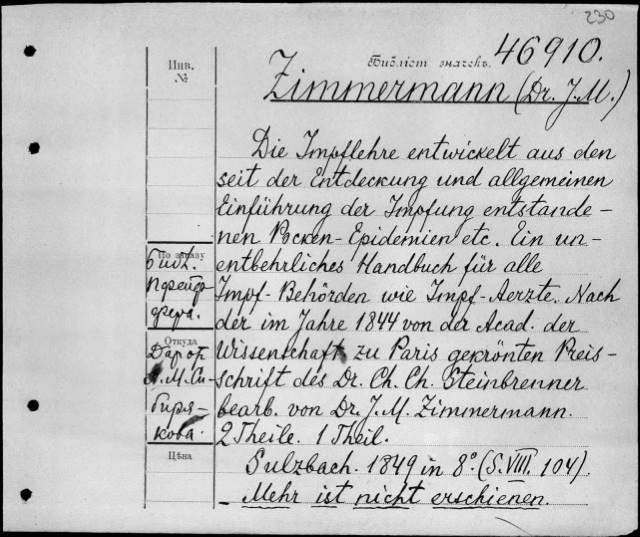 230
Библіот. значекъ. 46910.
Инв.
№
Zimmermann (Dr. J. M.)
Die Impflehre entwickelt aus den
seit der Entdeckung und allgemeinen
Einführung der Impfung entstande-
nen Pocken-Epidemien etc. Ein un-
entbehrliches Handbuch für alle
Impf-Behörden wie Impf-Aerzte. Nach
der im Jahre 1844 von der Acad. der
Wissenschaft zu Paris gekrönten Preis-
schrift des Dr. Ch. Ch. Steinbrenner
bearb. von Dr. J. M. Zimmermann.
2 Theile. 1 Theil.
Sulzbach. 1849 in 8º. (S. VIII. 104).
– Mehr ist nicht erschienen.
По заказу
Библ.
Пфейф-
фера.
Откуда
Дар от
А. М. Си-
биря-
кова.
Цѣна